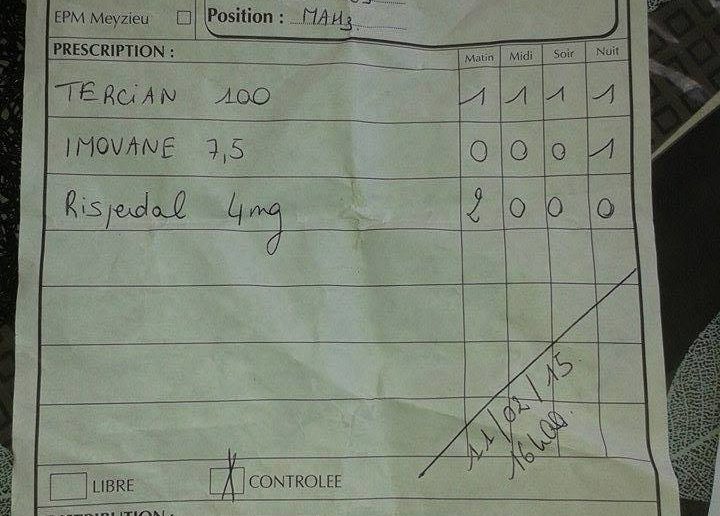 EPM Meyzieu Position : MAH3
PRESCRIPTION : Matin Midi Soir Nuit
TERCIAN 100 1 1 1 1
IMOVANE 7,5 0 0 0 1
Risperdal 4mg 2 0 0 0
11/02/15
16h00
LIBRE X CONTROLEE